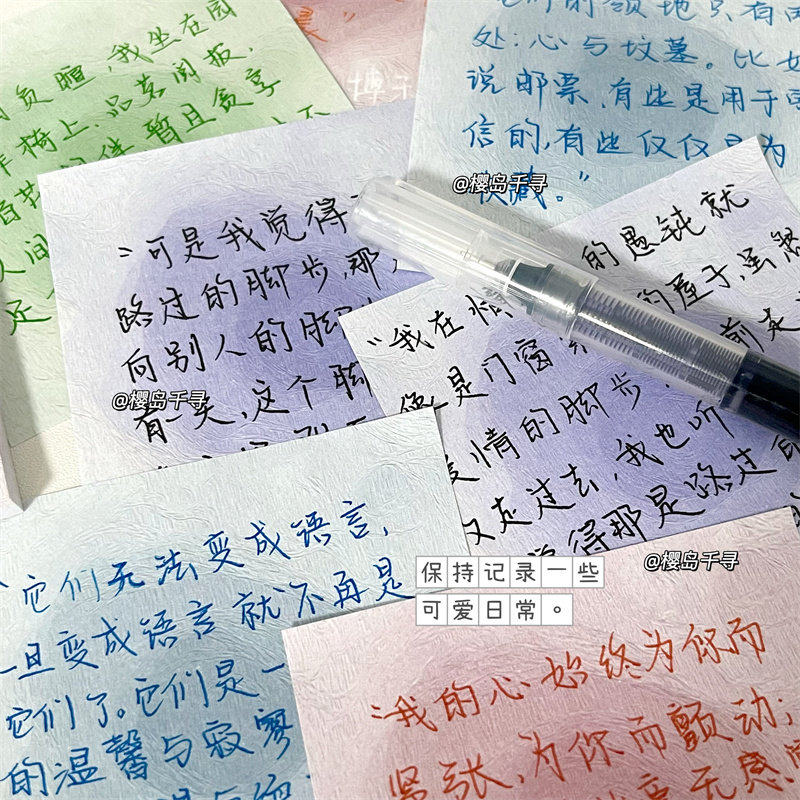 负暄,我坐在园
椅上,品茗阅报,
伴 暂且贪享
人间
足
博
它们的领地只有两
处:心与坟墓。比如
说邮票,有些是用于寄
信的,有些仅仅是为
收藏。”
@樱岛千寻
“可是我觉得
路过的脚步,那
向别人的脚
有一天,这个脚
@樱岛千寻
的愚钝就
“我在情 的屋子,虽然
像是门窗紧 前走
爱情的脚步,
又走过去,我也听
觉得那是路过
它们无法变成语言,
一旦变成语言就不再是
它们了。它们是一
的温馨与寂寥
保持记录一些
可爱日常。
@樱岛千寻
“我的心始终为你而
紧张,为你而颤动;
毫无感